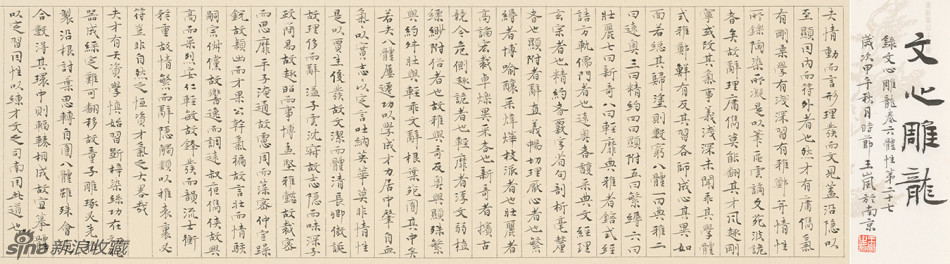 文心雕龍
錄文心雕龍卷六節體性第二十七
歲次甲午秋月時節 王嵐於南京
夫情動而言形理發而文見蓋沿隱以
至顯因內而符外者也然才有庸儁氣
有剛柔學有淺深習有雅鄭並情性
所鑠陶染所凝是以筆區雲譎文苑波詭
者矣故辭理庸儁莫能翻其才風趣剛
柔寧或改其氣事義淺深未聞乖其學體
式雅鄭鮮有反其習各師成心其異如
面若總其歸塗則數窮八體一曰典雅二
曰遠奧三曰精約四曰顯附五曰繁縟六曰
壯麗七曰新奇八曰輕靡典雅者鎔式經
誥方軌儒門者也遠奧者馥采典文經理
玄宗者也精約者覈字省句剖析毫釐
者也顯附者辭直義暢切理厭心者也繁
縟者博喻釀采煒燁枝派者也壯麗者
高論宏裁卓爍異采者也新奇者擯古
競今危側趣詭者也輕靡者浮文弱植
縹緲附俗者也故雅與奇反奧與顯殊繁
與約舛壯與輕乖文辭根葉苑囿其中矣
若夫八體屢遷功以學成才力居中肇自血
氣氣以實志志以定言吐納英華莫非情性
是以賈生俊發故文潔而體清長卿傲誕
故理侈而辭溢子雲沈寂故志隱而味深子
政簡易故趣昭而事博孟堅雅懿故裁密
而思靡平子淹通故慮周而藻密仲宣躁
銳故穎出而才果公幹氣褊故言壯而情駭
嗣宗俶儻故響逸而調遠叔夜儁俠故興
高而采烈安仁輕敏故鋒發而韻流士衡
矜重故情繁而辭隱觸類以推表裏必
符豈非自然之恒資才氣之大略哉
夫才有天資學慎始習斲梓染絲功在
器成綵定難可翻移故童子雕琢必先
製沿根討葉思轉自圓八體雖殊會
合數得其環中則輻輳相成故宜摹體
以定習因性以練才文之司南用此道也
sina 新浪收藏